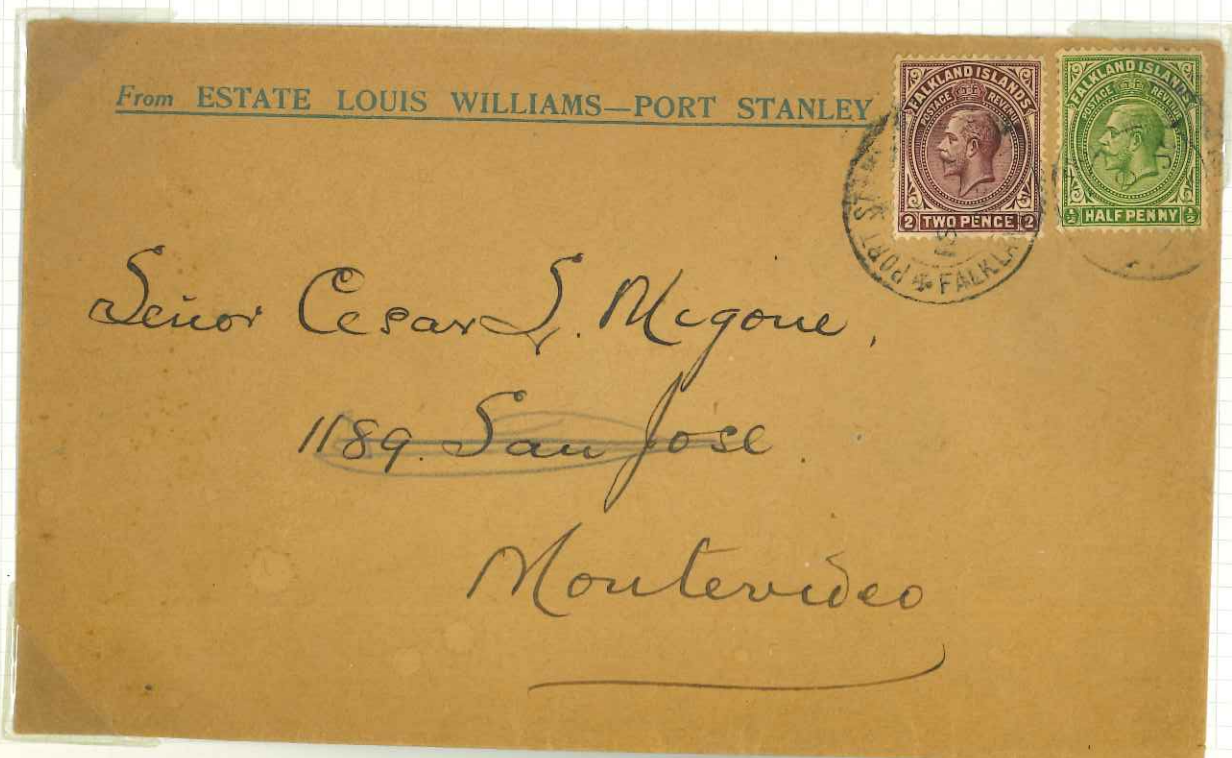 From ESTATE LOUIS WILLIAMS—PORT STANLEY
FALKLAND ISLANDS
POSTAGE REVENUE
2 TWO PENCE 2
FALKLAND ISLANDS
POSTAGE REVENUE
½ HALF PENNY ½
PORT
FALKLA
Señor Cesar S. Migone,
1189. San José.
Montevideo